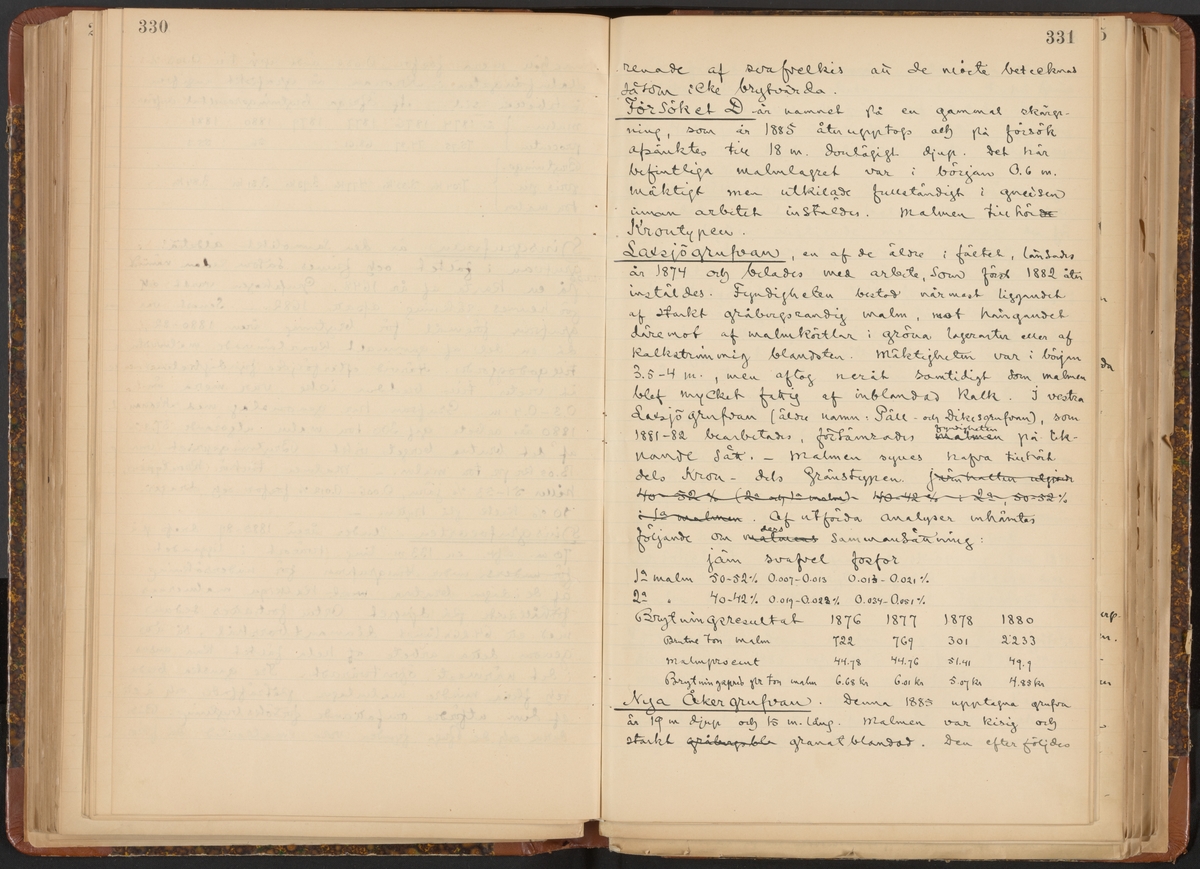 330
331
renade af svafvelkis att de måste betecknas
såsom icke brytvärda.
Försöket D är namnet på en gammal skärp-
ning, som år 1885 återupptogs och på försök
afsänktes till 18 m. donlägigt djup. Det här
befintliga malmlagret var i början 0.6 m.
mäktigt men utkilade fullständigt i gneisen
innan arbetet instäldes. Malmen tillhörde
Krontypen.
Laxsjögrufvan, en af de äldre i fältet, länsades
år 1874 och belades med arbete, som först 1882 åter
instäldes. Fyndigheten bestod närmast liggandet
af starkt gråbergsrandig malm, mot hängandet
däremot af malmkörtlar i gröna lagerarter eller af
kalkstrimmig blandsten. Mäktigheten var i början
3.5-4 m., men aftog neråt samtidigt som malmen
blef mycket fattig af inblandad kalk. I vestra
Laxsjögrufvan (äldre namn: Päll- och Dikesgrufvan), som
1881-82 bearbetades, försämrades malmen fyndigheten på lik-
nande sätt. – Malmen synes hafva tillhört
dels Kron- dels Gränstypen. Järnhalten utgjorde
40-52% (2a och 1a malm) 40-42% i 2a, 50-52%
i 1a malmen. Af utförda analyser inhämtas
följande om malmens dess sammansättning:
järn svafvel fosfor
1a malm 50-52% 0.007-0.013 0.013-0.021%
2a " 40-42% 0.019-0.023% 0.034-0.051%
Brytningsresultat 1876 1877 1878 1880
Brutne ton malm 722 769 301 2233
Malmprocent 44.78 44.76 51.41 49.9
Brytningspris pr ton malm 6.68 kr 6.01 kr 5.07 kr 4.89 kr
Nya Åkergrufvan. Denna 1885 upptagna grufva
är 19 m djup och 15 m. lång. Malmen var kisig och
starkt gråbergsbla granatblandad. Den efterföljdes